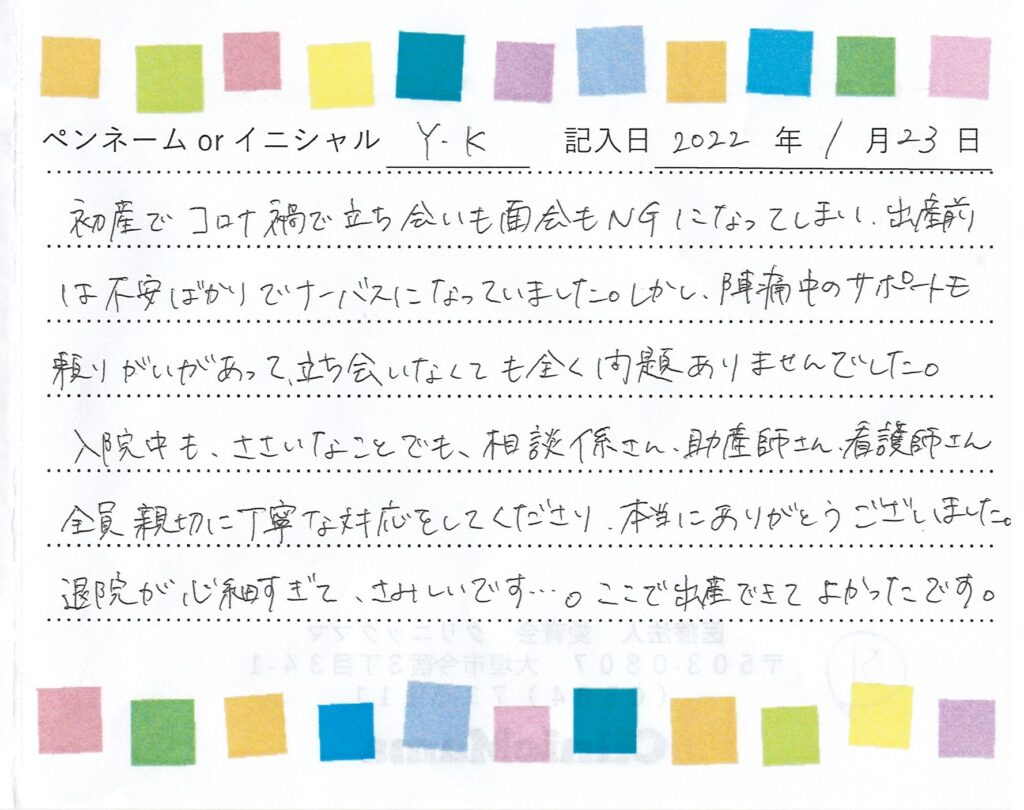 ペンネーム or イニシャル Y.K 記入日 2022 年 1 月 23 日
初産でコロナ禍で立ち会いも面会もNGになってしまい、出産前
は不安ばかりでナーバスになっていました。しかし、陣痛中のサポートも
頼りがいがあって、立ち会いなくても全く問題ありませんでした。
入院中も、ささいなことでも、相談係さん、助産師さん、看護師さん
全員親切に丁寧な対応をしてくださり、本当にありがとうございました。
退院が心細すぎて、さみしいです…。ここで出産できてよかったです。
医療法人 愛育会 クリニックママ
〒503-0807 大垣市今宿3丁目34-1